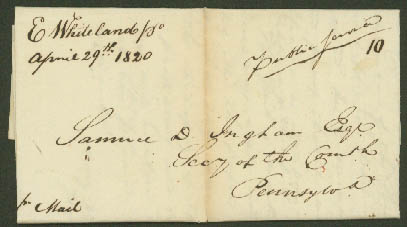 E Whiteland Pa
April 29th 1820
Public
10
Samuel D. Ingham Esq.
Secy of the Comth
Pennsylva
pr Mail